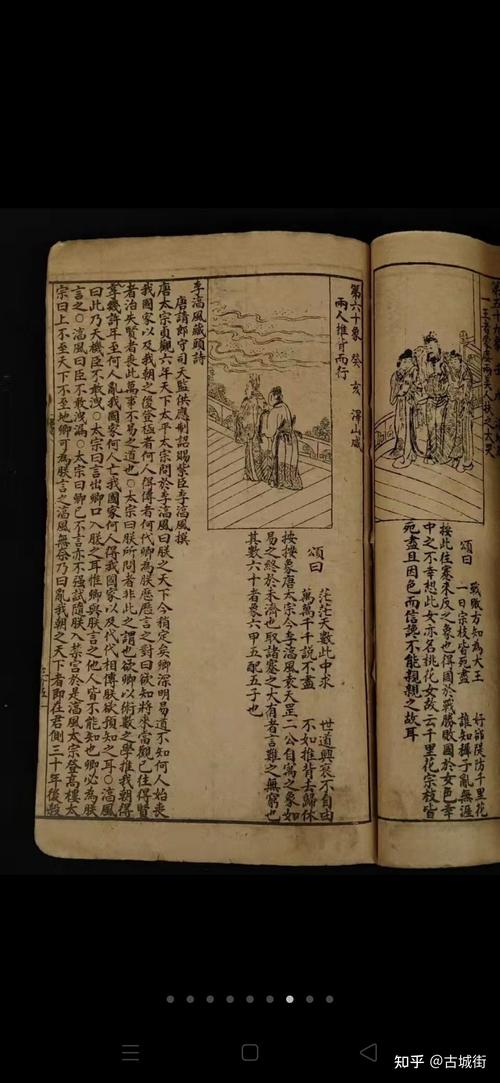 頌曰
戰勝方知為大王 好部陡防千里花
一日宗枝皆死盡 誰知搆子亂無涯
按此往蹇來反之象也得國於戰勝敗國於女色幸
中之不幸想此女亦名桃花女故云千里花宗枝皆
死盡且因色而信讒不能親親之故耳
第六十象 癸亥 澤山咸
兩人推背而行
頌曰
茫茫天數此中求 世道興衰不自由
萬萬千千說不盡 不如推背去歸休
按搜象唐太宗令李淳風袁天罡二公自寓之象如
易之終於未濟也取諸蹇之大有者言難之無窮也
其數六十者象六甲五配五子也
李淳風藏頭詩
唐請郎守司天監供應制詔賜紫臣李淳風撰
唐太宗貞觀六年天下太平太宗問於李淳風曰朕之天下今稍定矣卿深明易道不知何人始喪
我國家以及我朝之後登極者何人得傳者何代卿為朕歷歷言之對曰欲知將來當觀已往得賢
者治失賢者喪此萬事不易之道也○太宗曰朕所問者非此之謂也欲卿以術數之學推我朝得
享幾許年至何人亂我國家何人亡我國家何人得我國家以及代代相傳朕欲預知之耳○淳風
曰此乃天機臣不敢洩○太宗曰言出卿口入朕之耳惟卿與朕言之他人皆不能知也卿必為朕
言之○淳風曰臣不敢洩漏○太宗曰卿已不言亦不强試隨朕入禁宮於是淳風太宗登高樓太
宗曰上不至天下不至地卿可為朕言之淳風無奈乃曰亂我朝之天下者即在君側三十年後殺
知乎 @古城街